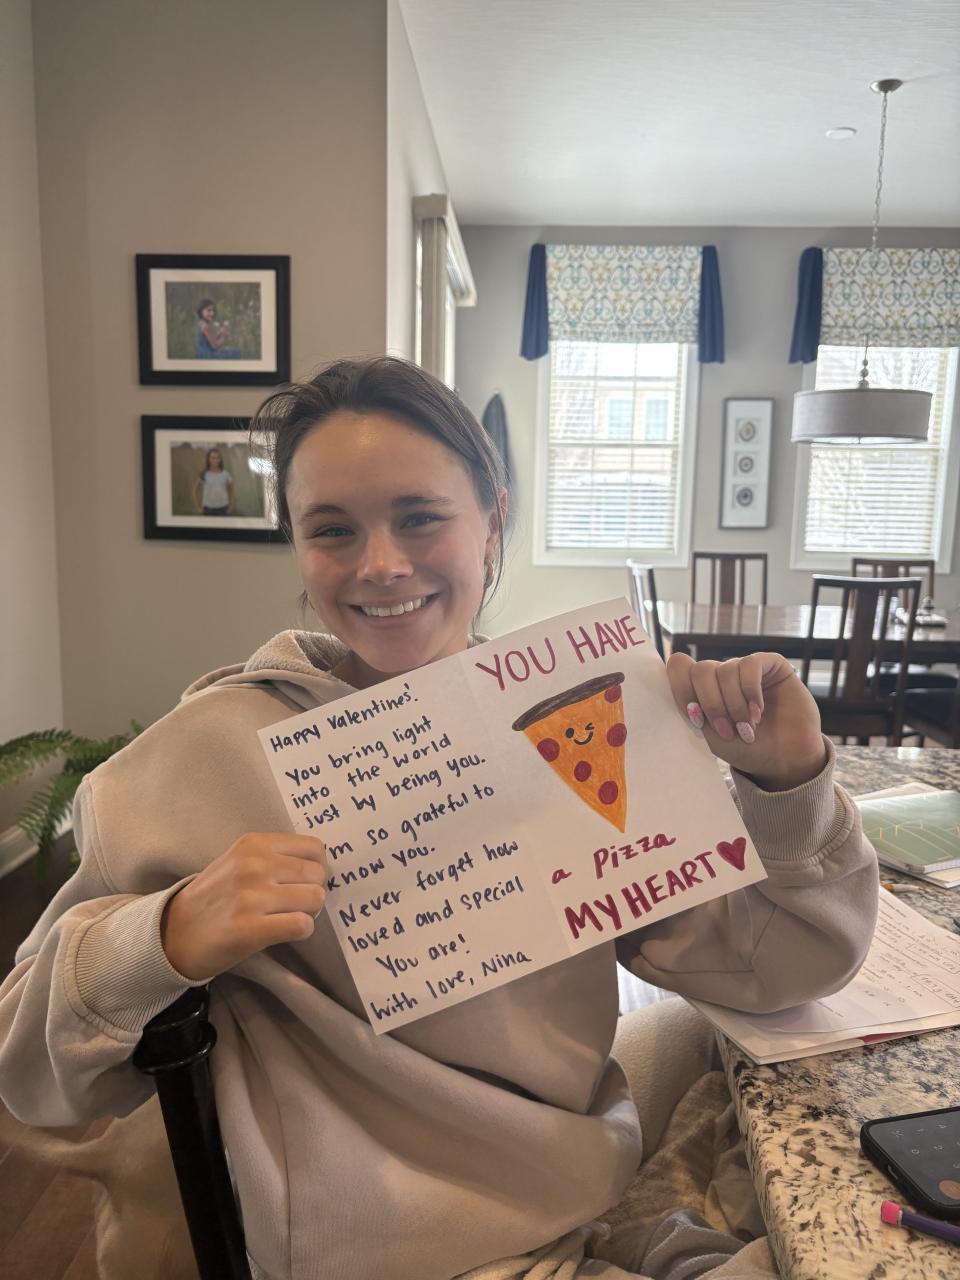 Happy Valentines!
You bring light
into the world
just by being you.
I'm so grateful to
know you.
Never forget how
loved and special
you are!
With love, Nina
YOU HAVE
a pizza
MY HEART